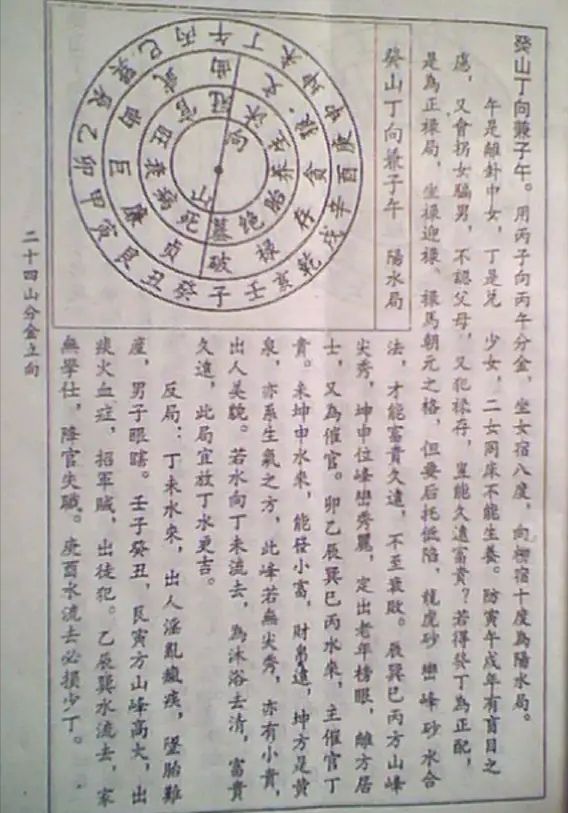 癸山丁向兼子午。用丙子向丙午分金，坐女宿八度，向柳宿十度為陽水局。
午是離卦中女，丁是兑　少女，二女同床不能生養。防寅午戌年有盲目之
慮，又會拐女騙男，不認父母，又犯祿存，豈能久遠富貴？若得癸丁為正配，
是為正祿局，坐祿迎祿，祿馬朝元之格，但要后托低陷，龍虎砂　巒峰砂水合
癸山丁向兼子午　陽水局
法，才能富貴久遠，不至衰敗。辰巽巳丙方山峰
尖秀，坤申位峰巒秀麗，定出老年榜眼，離方居
士，又為催官。卯乙辰巽巳丙水來，主催官丁
貴。未坤申水來，能發小富，財帛遠，坤方是黄
泉，亦系生氣之方，此峰若無尖秀，亦有小貴，
出人美貌。若水向丁未流去，為沐浴去清，富貴
久遠，此局宜放丁水更吉。
反局：丁未水來，出人淫亂瘋痰，墮胎難
産，男子眼瞎。壬子癸丑，艮寅方山峰高大，出
痰火血症，招軍賊，出徒犯。乙辰巽水流去，家
無學仕，降官失職。庚酉水流去必損少丁。
午丁未坤申庚酉辛戌乾亥壬子癸丑艮寅甲卯乙辰巽巳丙
曲文狼貪存祿破贞廉巨曲武
冠沐生养胎绝墓死病衰旺官
向
山
二十四山分金立向